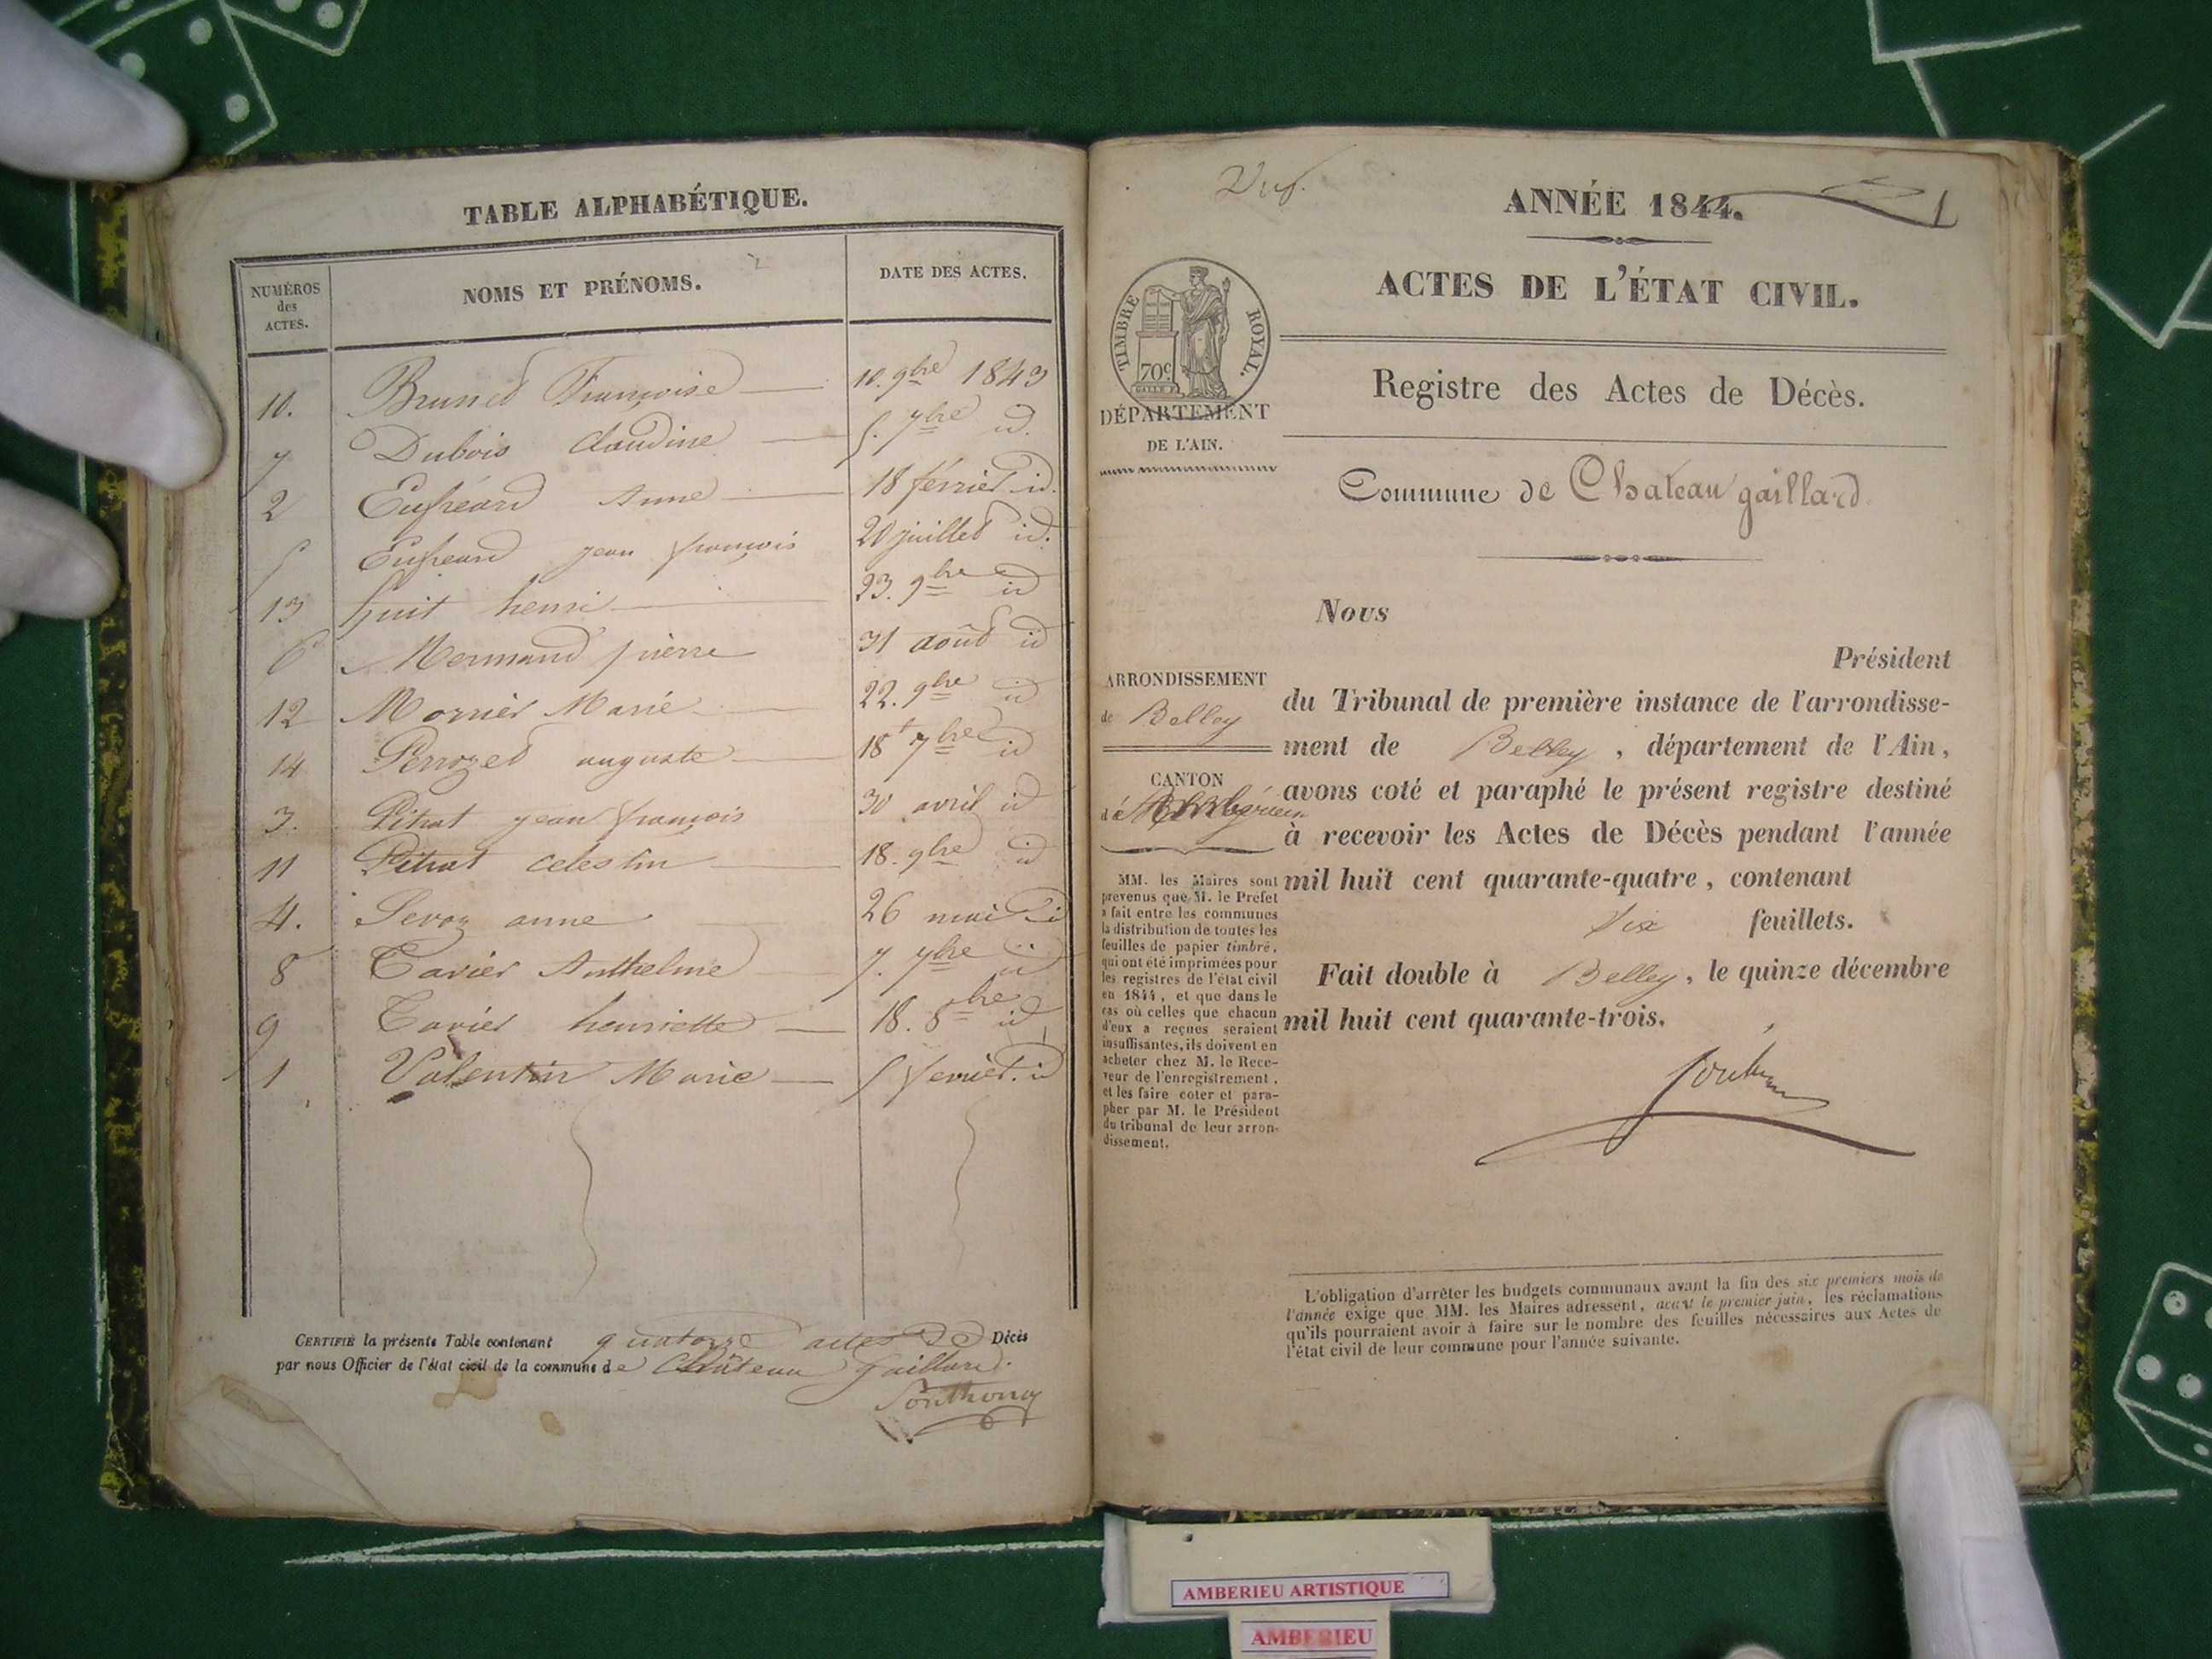 TABLE ALPHABÉTIQUE.
NUMÉROS
des
ACTES.
NOMS ET PRÉNOMS.
DATE DES ACTES.
10. Brunet Françoise 10. 9bre 1843
7 Dubois Claudine 5. 7bre id.
2 Anne 18 février id.
5 jean françois 20 juillet id.
13 huit henri 23. 9bre id
6 Mermand pierre 31 août id
12 Morrier Marie 22. 9bre id
14 Perrozet auguste 18 id
3. Pitrat jean françois 30 avril id
11 Pitrat celestin 18. 9bre id
4. anne 26 mai id
8 Tavier Anthelme 7. 7bre id
9 Tavier henriette 18. 8bre id
1 Valentin Marie 5 fevrier. id
CERTIFIÉ la présente Table contenant quatorze actes de Décès
par nous Officier de l'état civil de la commune de Château Gaillard.
ANNÉE 1844.
1
ACTES DE L'ÉTAT CIVIL.
TIMBRE ROYAL.
70c
DÉPARTEMENT
DE L'AIN.
Registre des Actes de Décès.
Commune de Chateau gaillard
Nous
Président
du Tribunal de première instance de l'arrondisse-
ment de Belley, département de l'Ain,
avons coté et paraphé le présent registre destiné
à recevoir les Actes de Décès pendant l'année
mil huit cent quarante-quatre, contenant
six feuillets.
Fait double à Belley, le quinze décembre
mil huit cent quarante-trois.
ARRONDISSEMENT
de Belley
CANTON
MM. les Maires sont
prévenus que M. le Préfet
a fait entre les communes
la distribution de toutes les
feuilles de papier timbré,
qui ont été imprimées pour
les registres de l'état civil
en 1844, et que dans le
cas où celles que chacun
d'eux a reçues seraient
insuffisantes, ils doivent en
acheter chez M. le Rece-
veur de l'enregistrement,
et les faire coter et para-
pher par M. le Président
du tribunal de leur arron-
dissement.
L'obligation d'arrêter les budgets communaux avant la fin des six premiers mois de
l'année exige que MM. les Maires adressent, avant le premier juin, les réclamations
qu'ils pourraient avoir à faire sur le nombre des feuilles nécessaires aux Actes de
l'état civil de leur commune pour l'année suivante.
AMBERIEU ARTISTIQUE
AMBERIEU